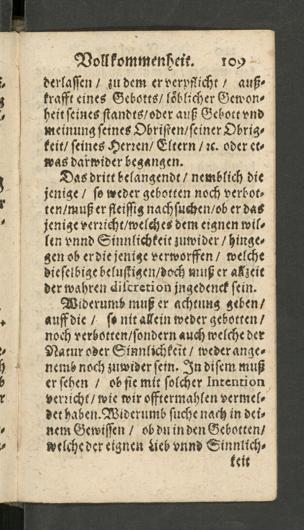 Vollkommenheit. 109
derlassen / zu dem er verpflicht / auß-
krafft eines Gebotts / löblicher Gewon-
heit seines standts / oder auß Gebott vnd
meinung seines Obristen / seiner Obrig-
keit / seines Herren / Eltern / ꝛc. oder et-
was darwider begangen.
Das dritt belangendt / nemblich die
jenige / so weder gebotten noch verbot-
ten / muß er fleissig nachsuchen / ob er das
jenige verricht / welches dem eignen wil-
len vnnd Sinnlichkeit zuwider / hinge-
gen ob er die jenige verworffen / welche
dieselbige belustigen / doch muß er allzeit
der wahren discretion jngedenck sein.
Widerumb muß er achtung geben /
auff die / so nit allein weder gebotten /
noch verbotten / sondern auch welche der
Natur oder Sinnlichkeit / weder ange-
nemb noch zuwider sein. In disem muß
er sehen / ob sie mit solcher Intention
verricht / wie wir offtermahlen vermel-
det haben. Widerumb suche nach in dei-
nem Gewissen / ob du in den Gebotten /
welche der eignen Lieb vnnd Sinnlich-
keit